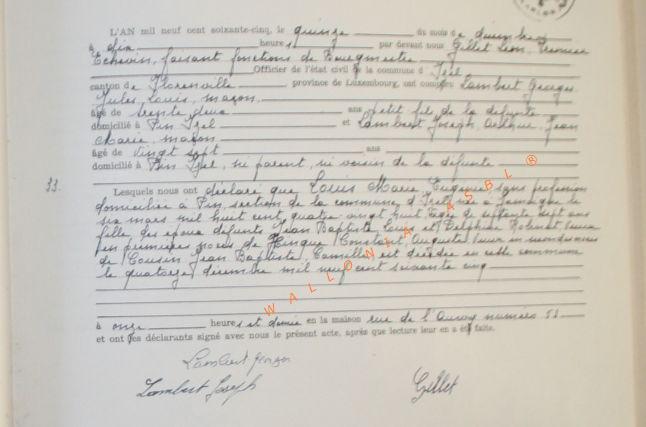 L'AN mil neuf cent soixante-cinq, le quinze du mois de décembre
à dix heures, par devant nous Gillet Léon, Premier
Echevin, faisant fonctions de Bourgmestre
Officier de l'état civil de la commune d'Izel
canton de Florenville province de Luxembourg, ont comparu Lambert Georges
Jules, Louis, maçon
âgé de trente deux ans petit fils de la défunte
domicilié à Pin Izel et Lambert Joseph, Jean
Marie, maçon
âgé de vingt sept ans
domicilié à Pin Izel, ni parent, ni voisin de la défunte
33.
Lesquels nous ont déclaré que Louis Marie, Eugénie sans profession
domiciliée à Pin, section de la commune d'Izel, née à Jamoigne le
six mars mil huit cent quatre vingt huit, âgée de septante sept ans
fille des époux défunts Jean Baptiste Louis et Delphine veuve
en premières noces de Constant, Auguste veuve en secondes noces
de Cousin Jean Baptiste, Camille est décédée en cette commune
le quatorze décembre mil neuf cent soixante cinq
à onze heures et demie en la maison rue de numéro 53
et ont les déclarants signé avec nous le présent acte, après que lecture leur en a été faite.
Lambert Georges
Lambert Joseph Gillet
WALLONIA ASBL ®